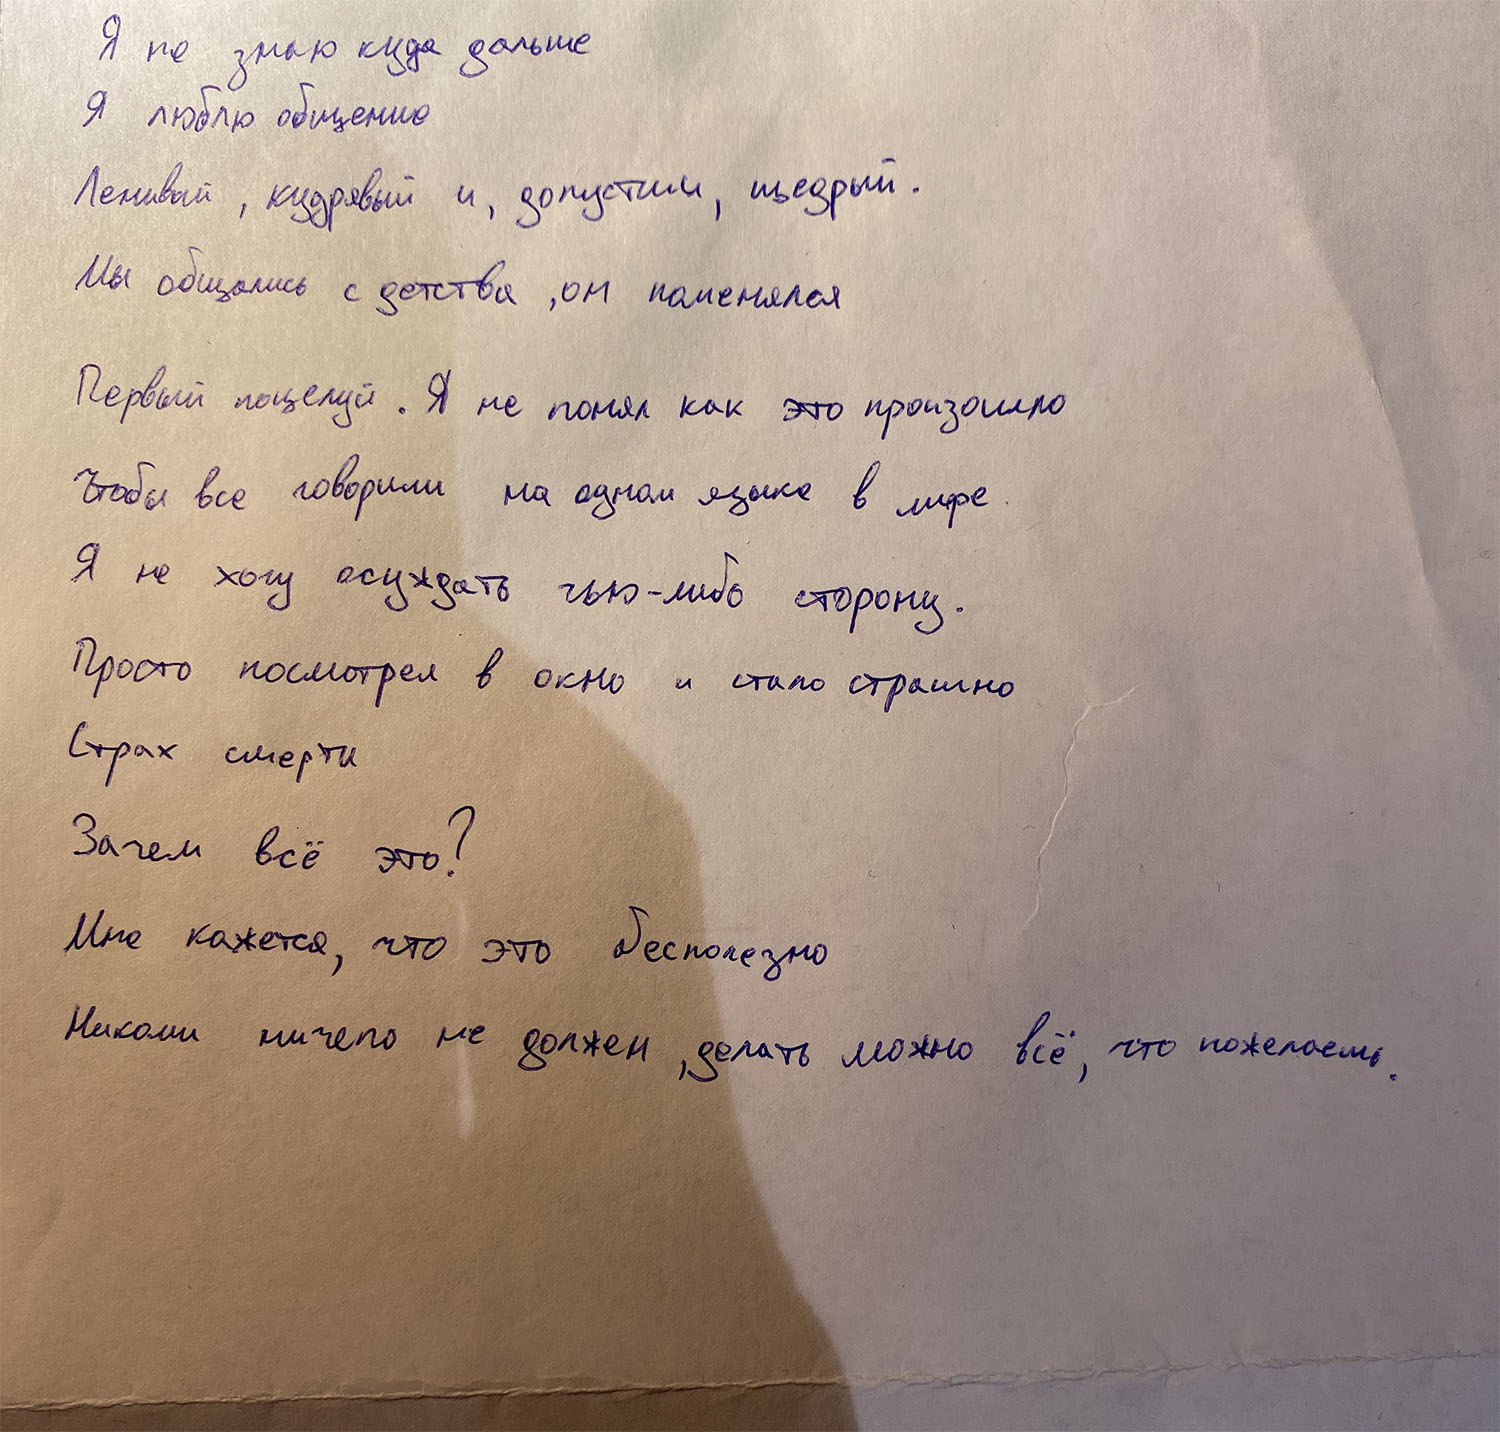 Я не знаю куда дальше
Я люблю общение
Ленивый, кудрявый и, допустим, щедрый.
Мы общались с детства, он поменялся
Первый поцелуй. Я не понял как это произошло
Чтобы все говорили на одном языке в мире.
Я не хочу осуждать чью-либо сторону.
Просто посмотрел в окно и стало страшно
Страх смерти
Зачем всё это?
Мне кажется, что это бесполезно
Никому ничего не должен, делать можно всё, что пожелаешь.